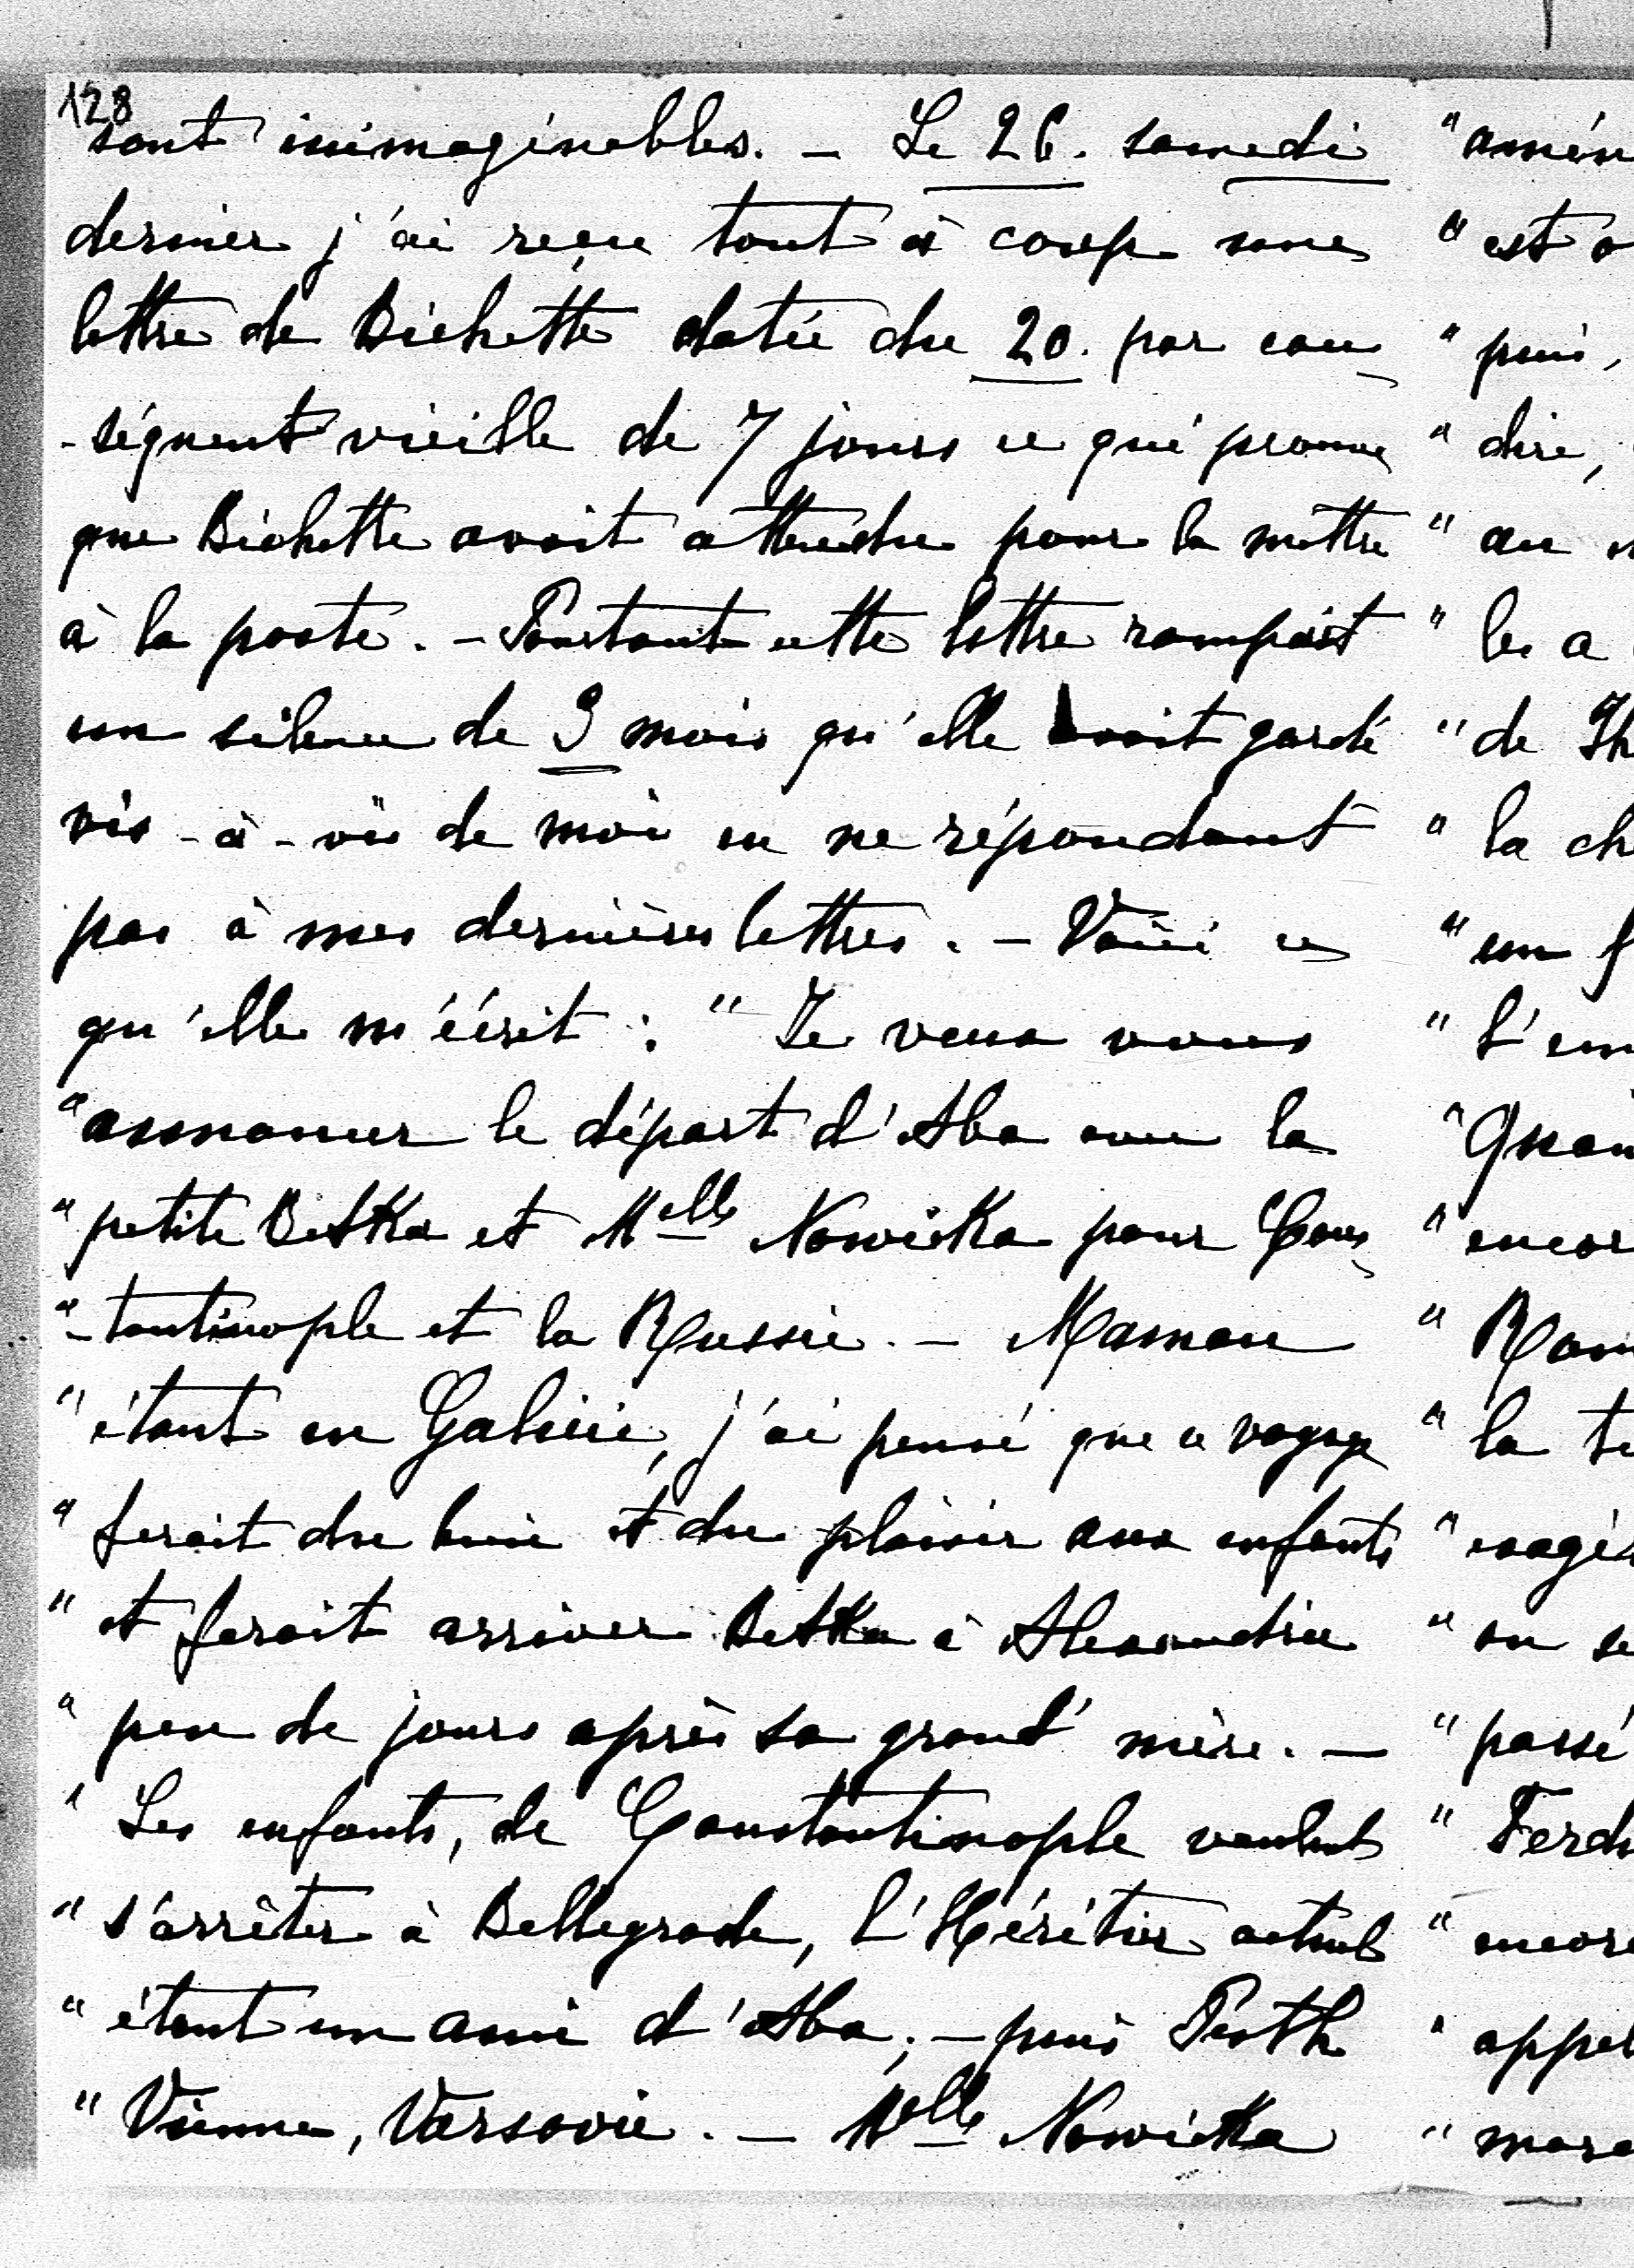 128
sont inimaginables. - Le 26. samedi
dernier j'ai reçu tout à coup une
lettre de Bichette datée du 20. par con
-séquent vieille de 7 jours ce qui prouve
que Bichette avait attendu pour la mettre
à la poste. - Pourtant cette lettre rompait
un silence de 9 mois qu'elle avait gardé
vis-à-vis de moi en ne répondant
pas à mes dernières lettres. - Voici ce
qu'elle m'écrit : "Je veux vous
"annoncer le départ d'Aba avec la
"petite Betka et Melle Nowicka pour Cons
"-tantinople et la Russie. - Maman
"étant en Galicie, j'ai pensé que ce voyage
"ferait du bien et du plaisir aux enfants
"et ferait arriver Betka à Alexandrie
"peu de jours après sa grand'mère. -
"Les enfants, de Constantinople veulent
"s'arrêter à Bellegrade, l'Héritier actuel
"étant un ami d'Aba; - puis Pesth
"Vienne, Varsovie. - Melle Nowicka
"est
"puis,
"dire,
"au
"les a
"de
"la
"un
"l'
"la
"on se
"passé